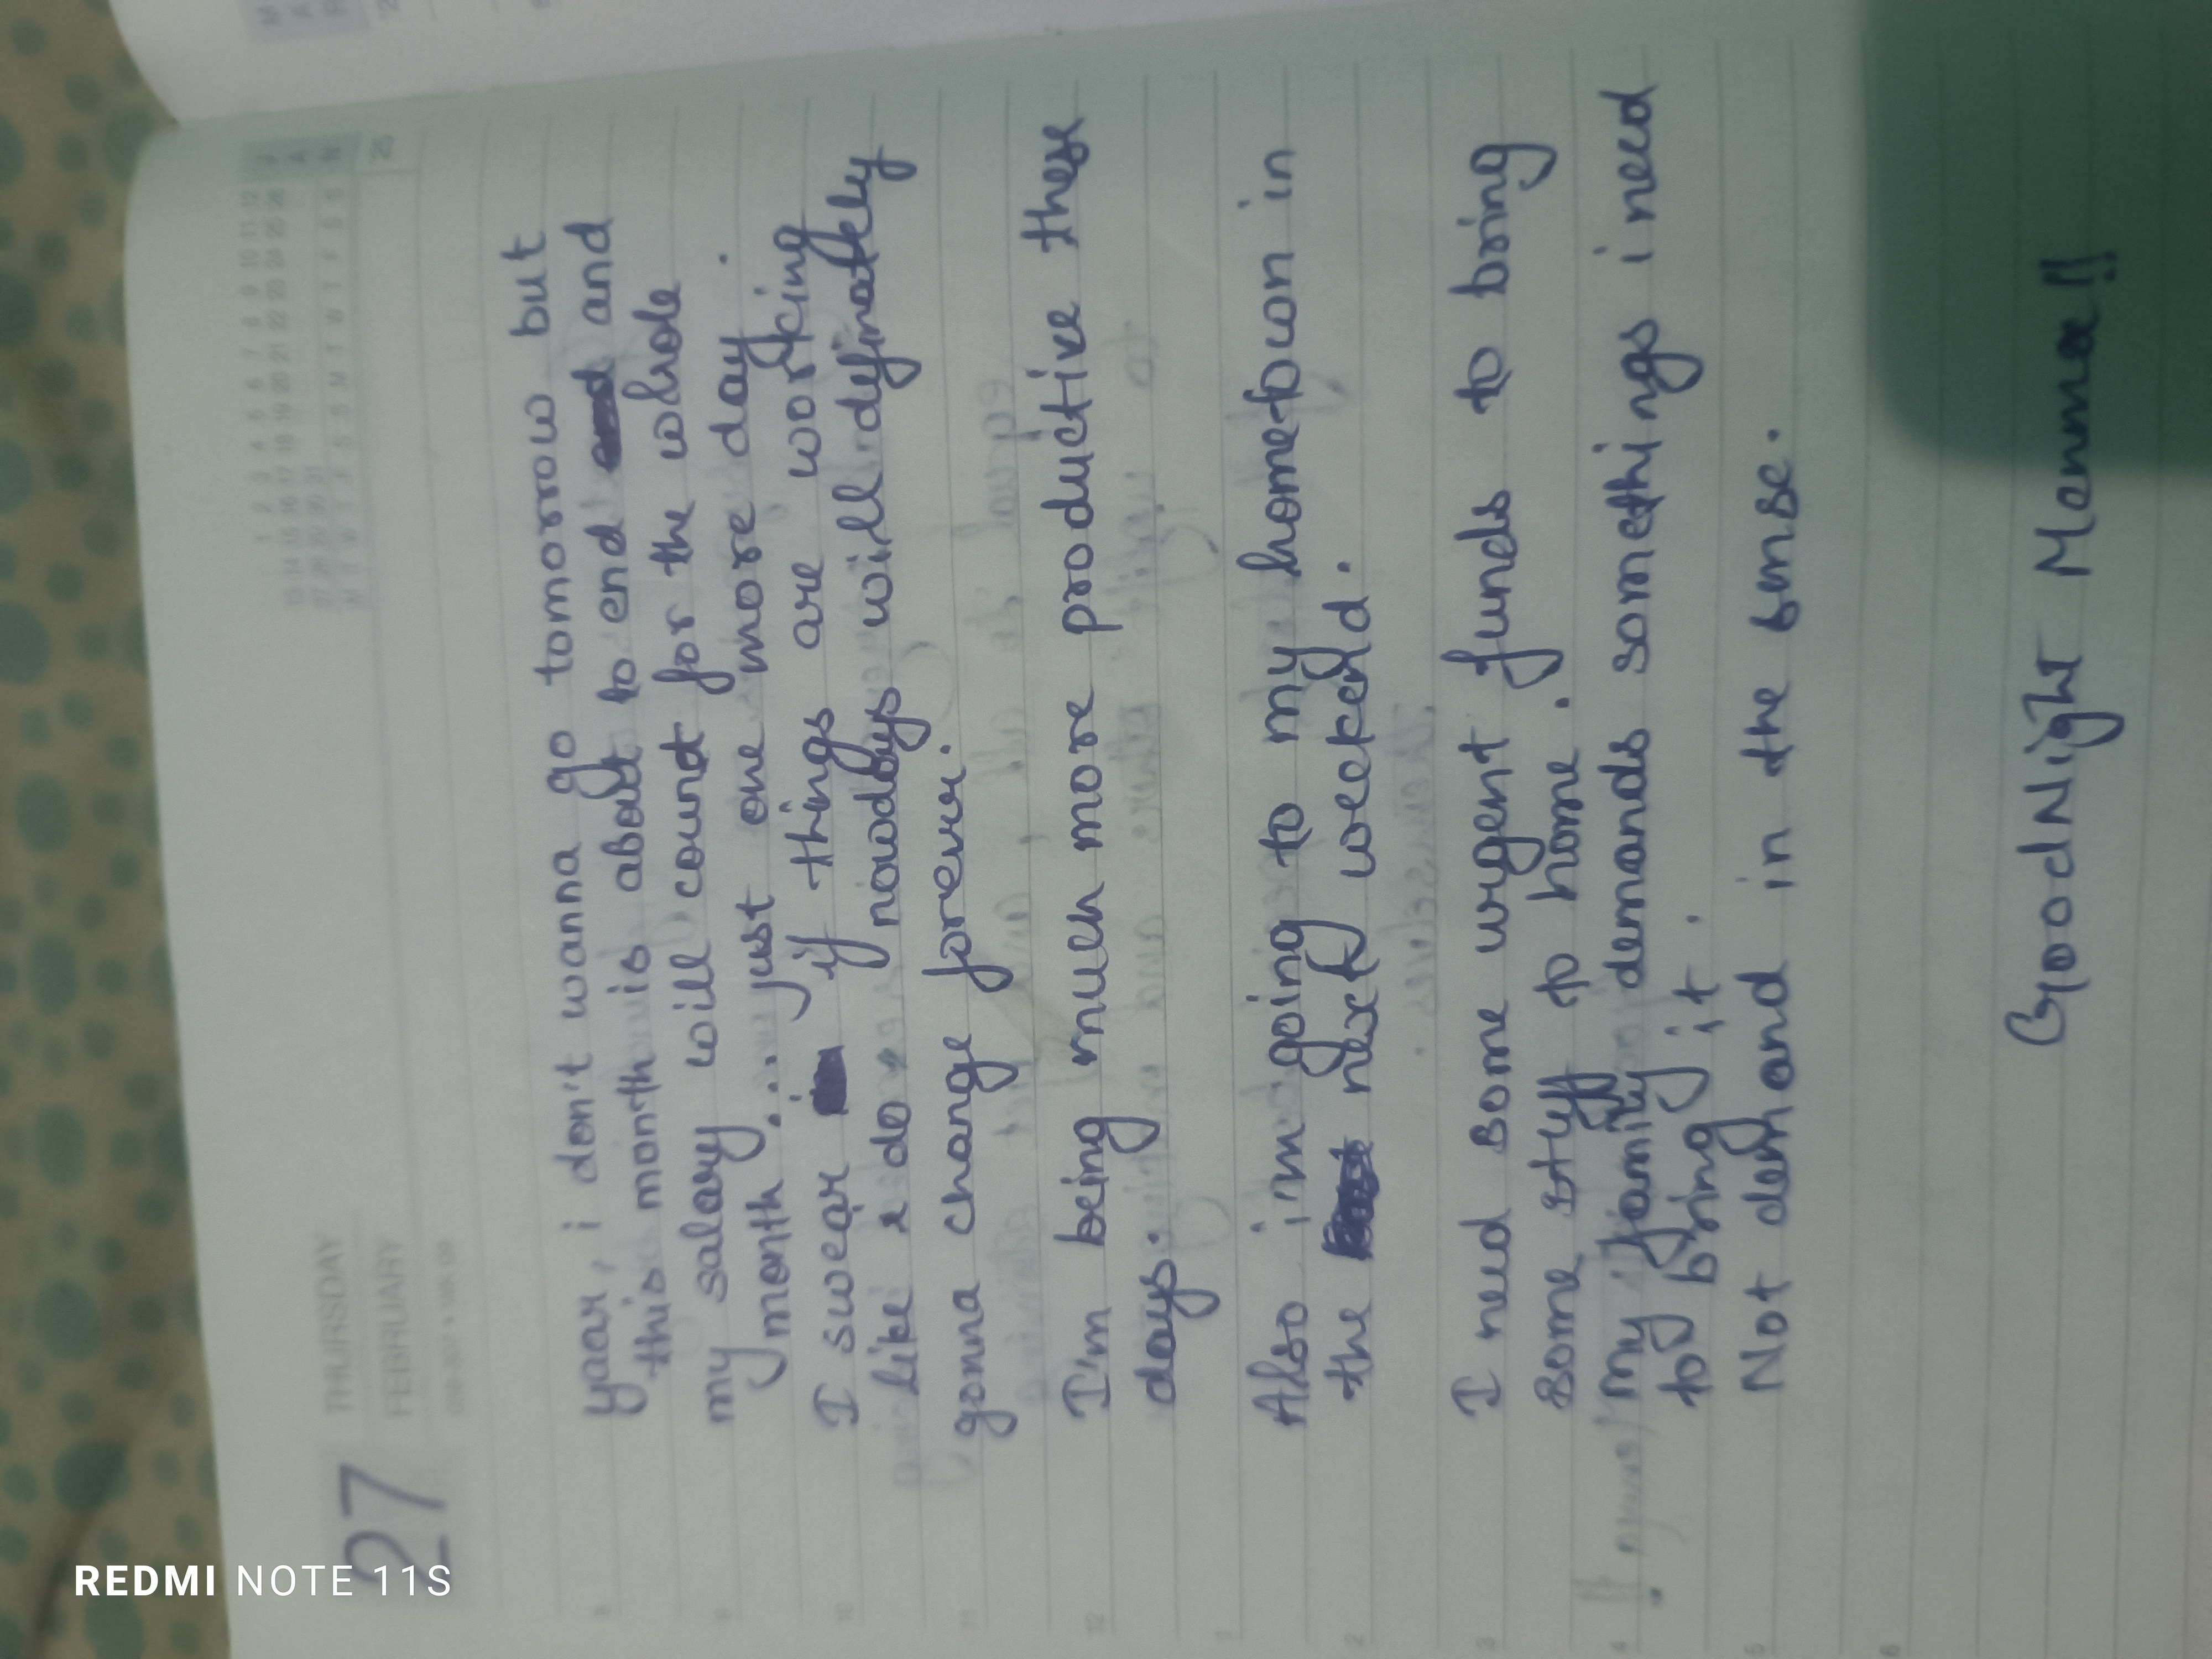 27
THURSDAY
FEBRUARY
yaar, i don't wanna go tomorrow but
this month is about to end and
my salary will count for the whole
month... just one more day.
I swear if things are working
like I do nowdays will definately
gonna change forever.
I'm being much more productive these
days.
Also im going to my hometown in
the next weekend.
I need some urgent funds to bring
some stuff to home.
My family demands somethings i need
to bring it.
Not demand in the sense.
GoodNight Manma!!
REDMI NOTE 11S